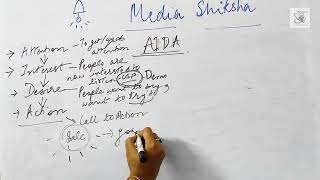 Media Shiksha
→ Attention - To get/grab attention
AIDA
→ Interest - People are now interested to listen
→ Desire - People want to buy
USP Demo
want to try it
→ Action
→ Call to Action
Sale → go